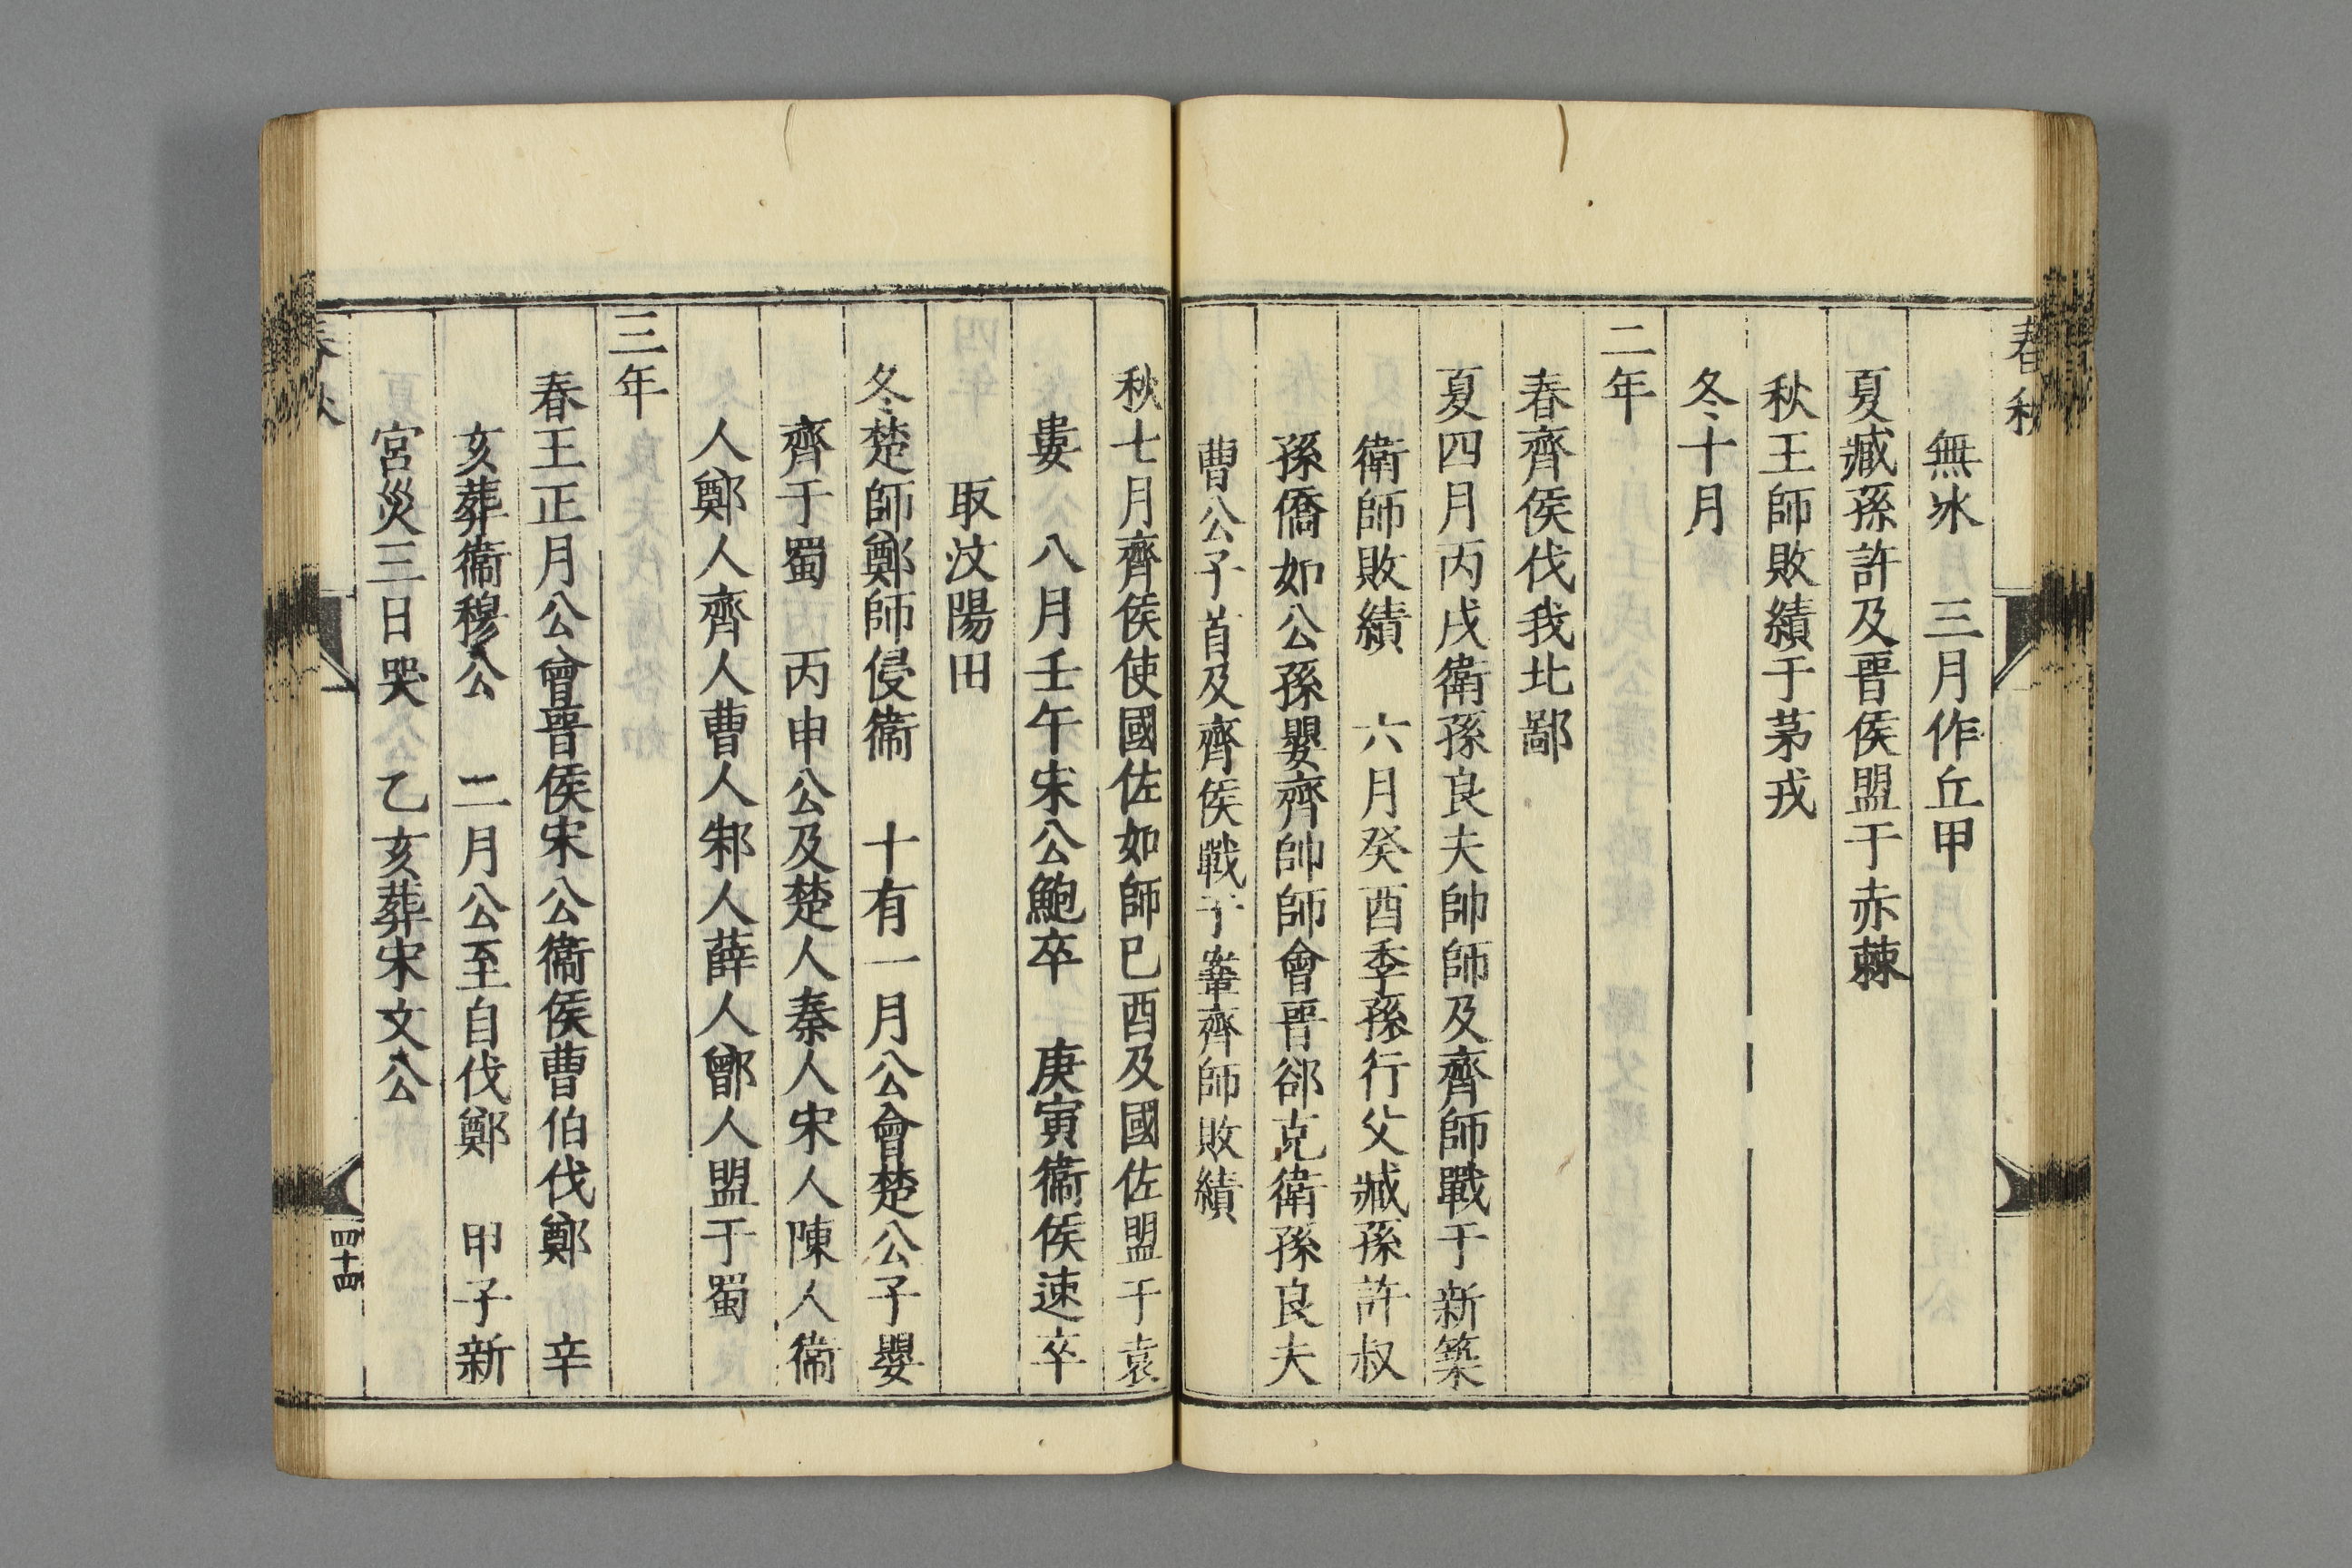 春秋
無冰　三月作丘甲
夏臧孫許及晉侯盟于赤棘
秋王師敗績于茅戎
冬十月
二年
春齊侯伐我北鄙
夏四月丙戌衛孫良夫帥師及齊師戰于新築
衛師敗績　六月癸酉季孫行父臧孫許叔
孫僑如公孫嬰齊帥師會晉郤克衛孫良夫
曹公子首及齊侯戰于鞌齊師敗績
秋七月齊侯使國佐如師已酉及國佐盟于袁
婁　八月壬午宋公鮑卒　庚寅衞侯速卒
取汶陽田
冬楚師鄭師侵衞　十有一月公會楚公子嬰
齊于蜀　丙申公及楚人秦人宋人陳人衞
人鄭人齊人曹人邾人薛人鄫人盟于蜀
三年
春王正月公會晉侯宋公衞侯曹伯伐鄭　辛
亥葬衞穆公　二月公至自伐鄭　甲子新
宮災三日哭　乙亥葬宋文公
春秋
四十四